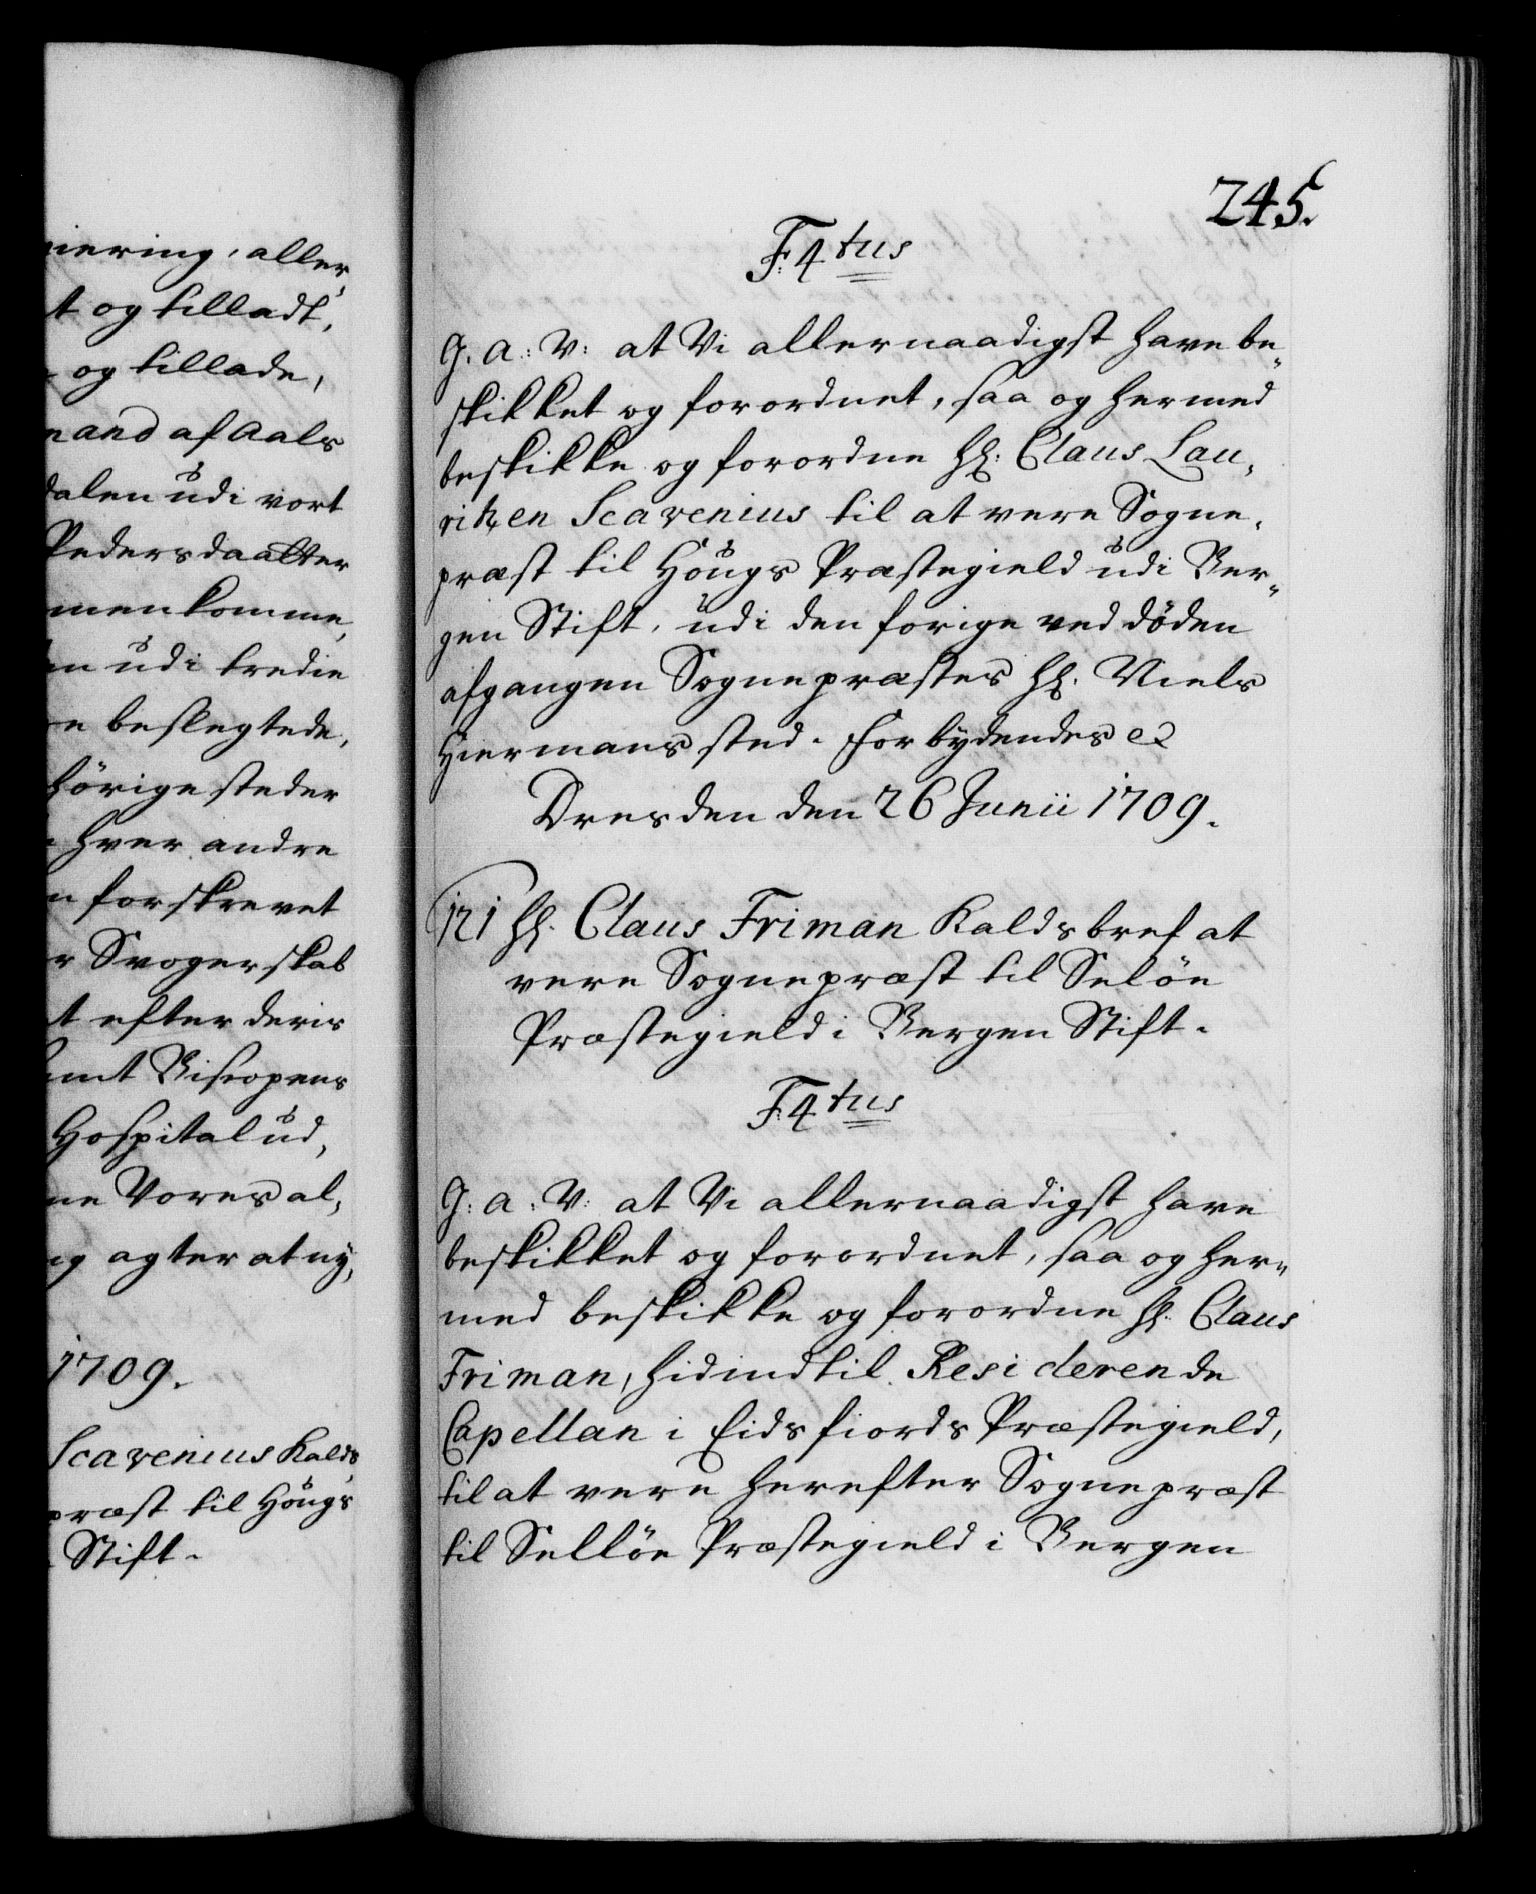 niering, aller,
t og tilladt,
og tillade,
mand af Aals
dalen udi vort
Pedersdaatter
men komme,
en udi tredie
re beslegtede,
hörige steder
hver andre
n forskrevet
r Svogerskab
t efter deris
amt Biscopens
Hospital ud,
ne Vores al,
ig agter at ny,
1709.
Scavenius Kalds
præst til Høugs
Stift.
245.
F: 4tus
G. A: V: at Vi allernaadigst have be„
skikket og forordnet, saa og hermed
beskikke og forordne Hr: Claus Lau,
ritzen Scavenius til at være Sogne,
præst til Høugs Præstegield udi Ber„
gen Stift, udi den forige ved döden
afgangen Sognepræstes Hr. Niels
Hiermans sted. Forbydendes etc
Dresden den 26 Junii 1709.
121 Hr. Claus Friman Kaldsbref at
være Sognepræst til Seløe
Præstegield i Bergen Stift.
F: 4tus
G: A: V: at Vi allernaadigst have
beskikket og forordnet, saa og her„
med beskikke og forordne Hr. Claus
Friman, hidindtil Residerende
Capellan i Eidsfiords Præstegield,
til at være herefter Sognepræst
til Selløe Præstegield i Bergen